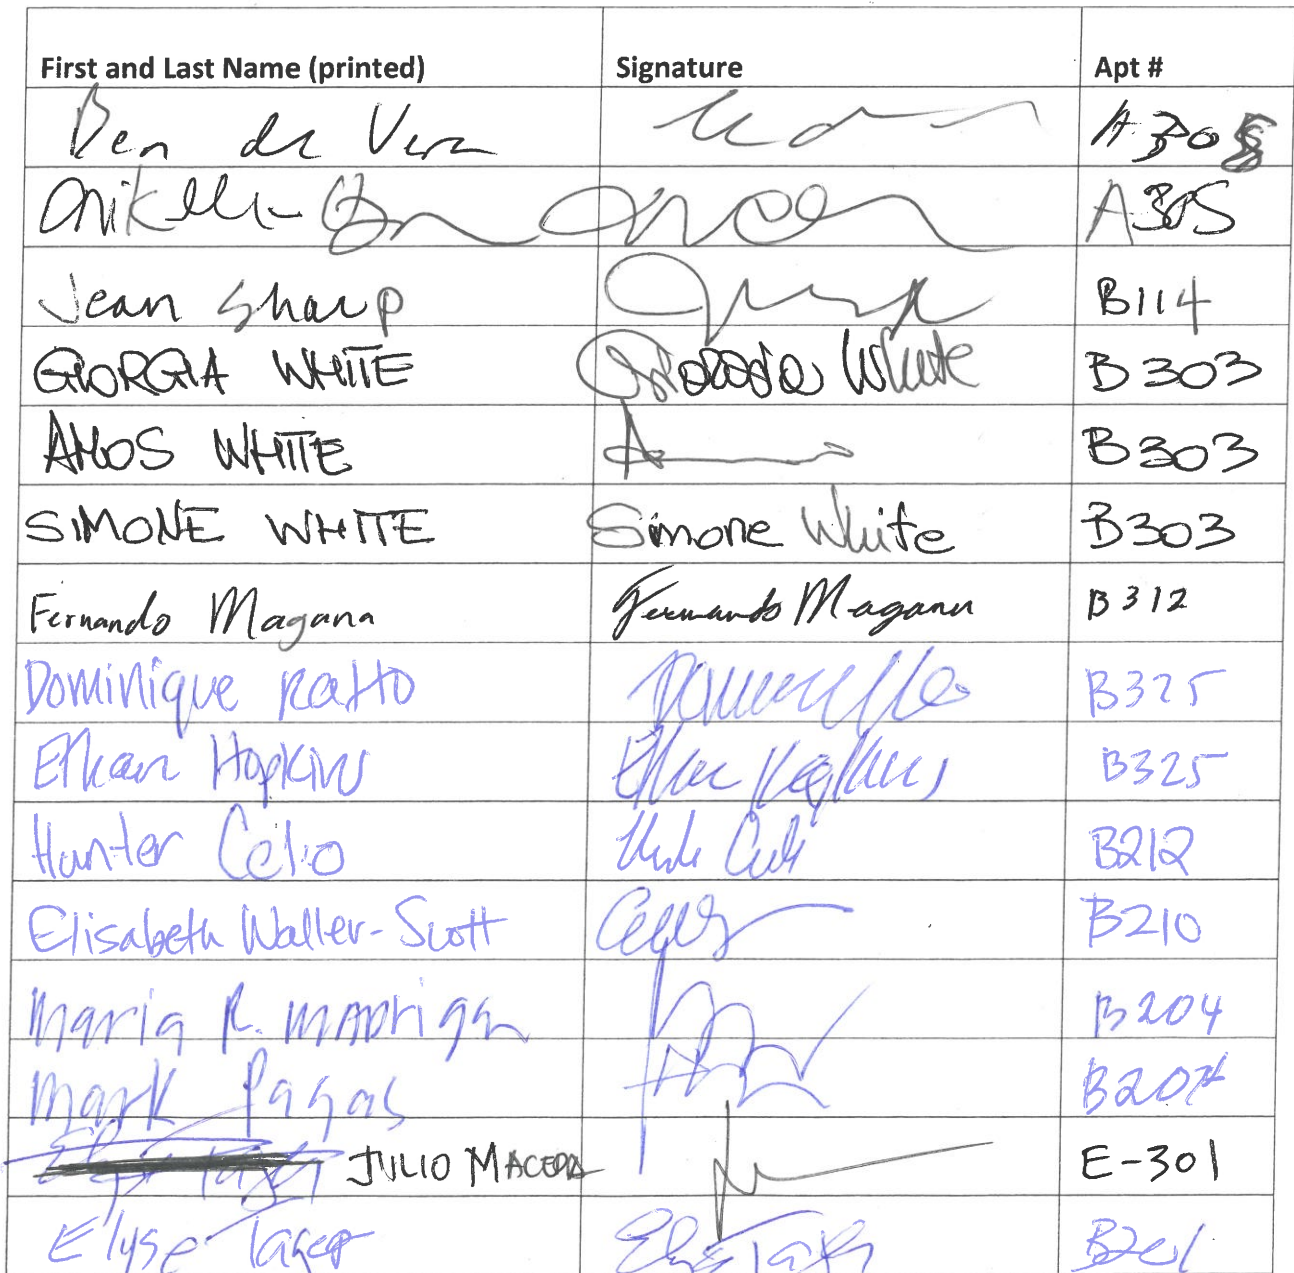 First and Last Name (printed) Signature Apt #
Ben de Vera A305
Anikelle A305
Jean Sharp B114
GIORGIA WHITE Giorgia White B303
AMOS WHITE B303
SIMONE WHITE Simone White B303
Fernando Magana Fernando Magana B312
Dominique Ratto B325
Ethan Hopkins B325
Hunter Celio B212
Elisabeth Waller-Scott B210
Maria R. Madrigan B204
Mark Pagas B204
JULIO MACEDA E-301
Elyse Tager B201